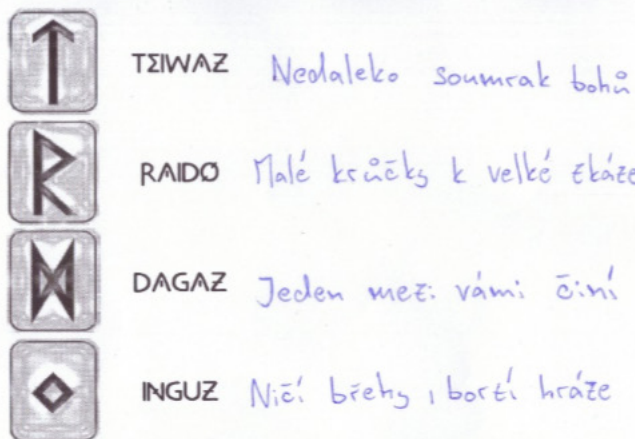 TEIWAZ Nedaleko soumrak bohů
RAIDO Malé krůčky k velké zkáze
DAGAZ Jeden mezi vámi činí
INGUZ Ničí břehy, bortí hráze